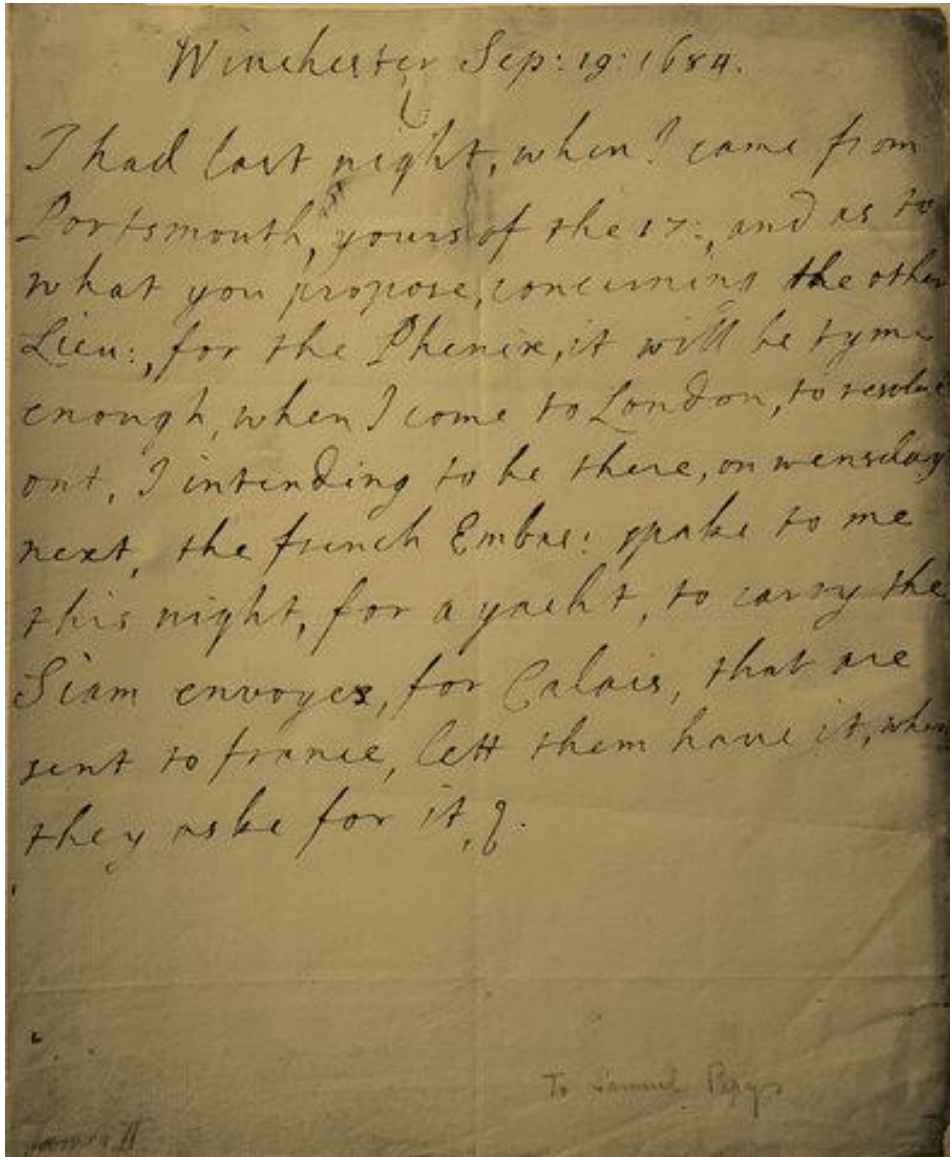 Winchester Sep: 19: 1684.
I had last night, when I came from
Portsmouth, yours of the 17:, and as to
what you propose, concerning the other
Lieu:, for the Phenix, it will be tyme
enough, when I come to London, to resolve
ont, I intending to be there, on wensday
next, the french Embas: spake to me
this night, for a yacht, to carry the
Siam envoyes, for Calais, that are
sent to france, lett them have it, when
they aske for it,
To Samuel Pepys
James II